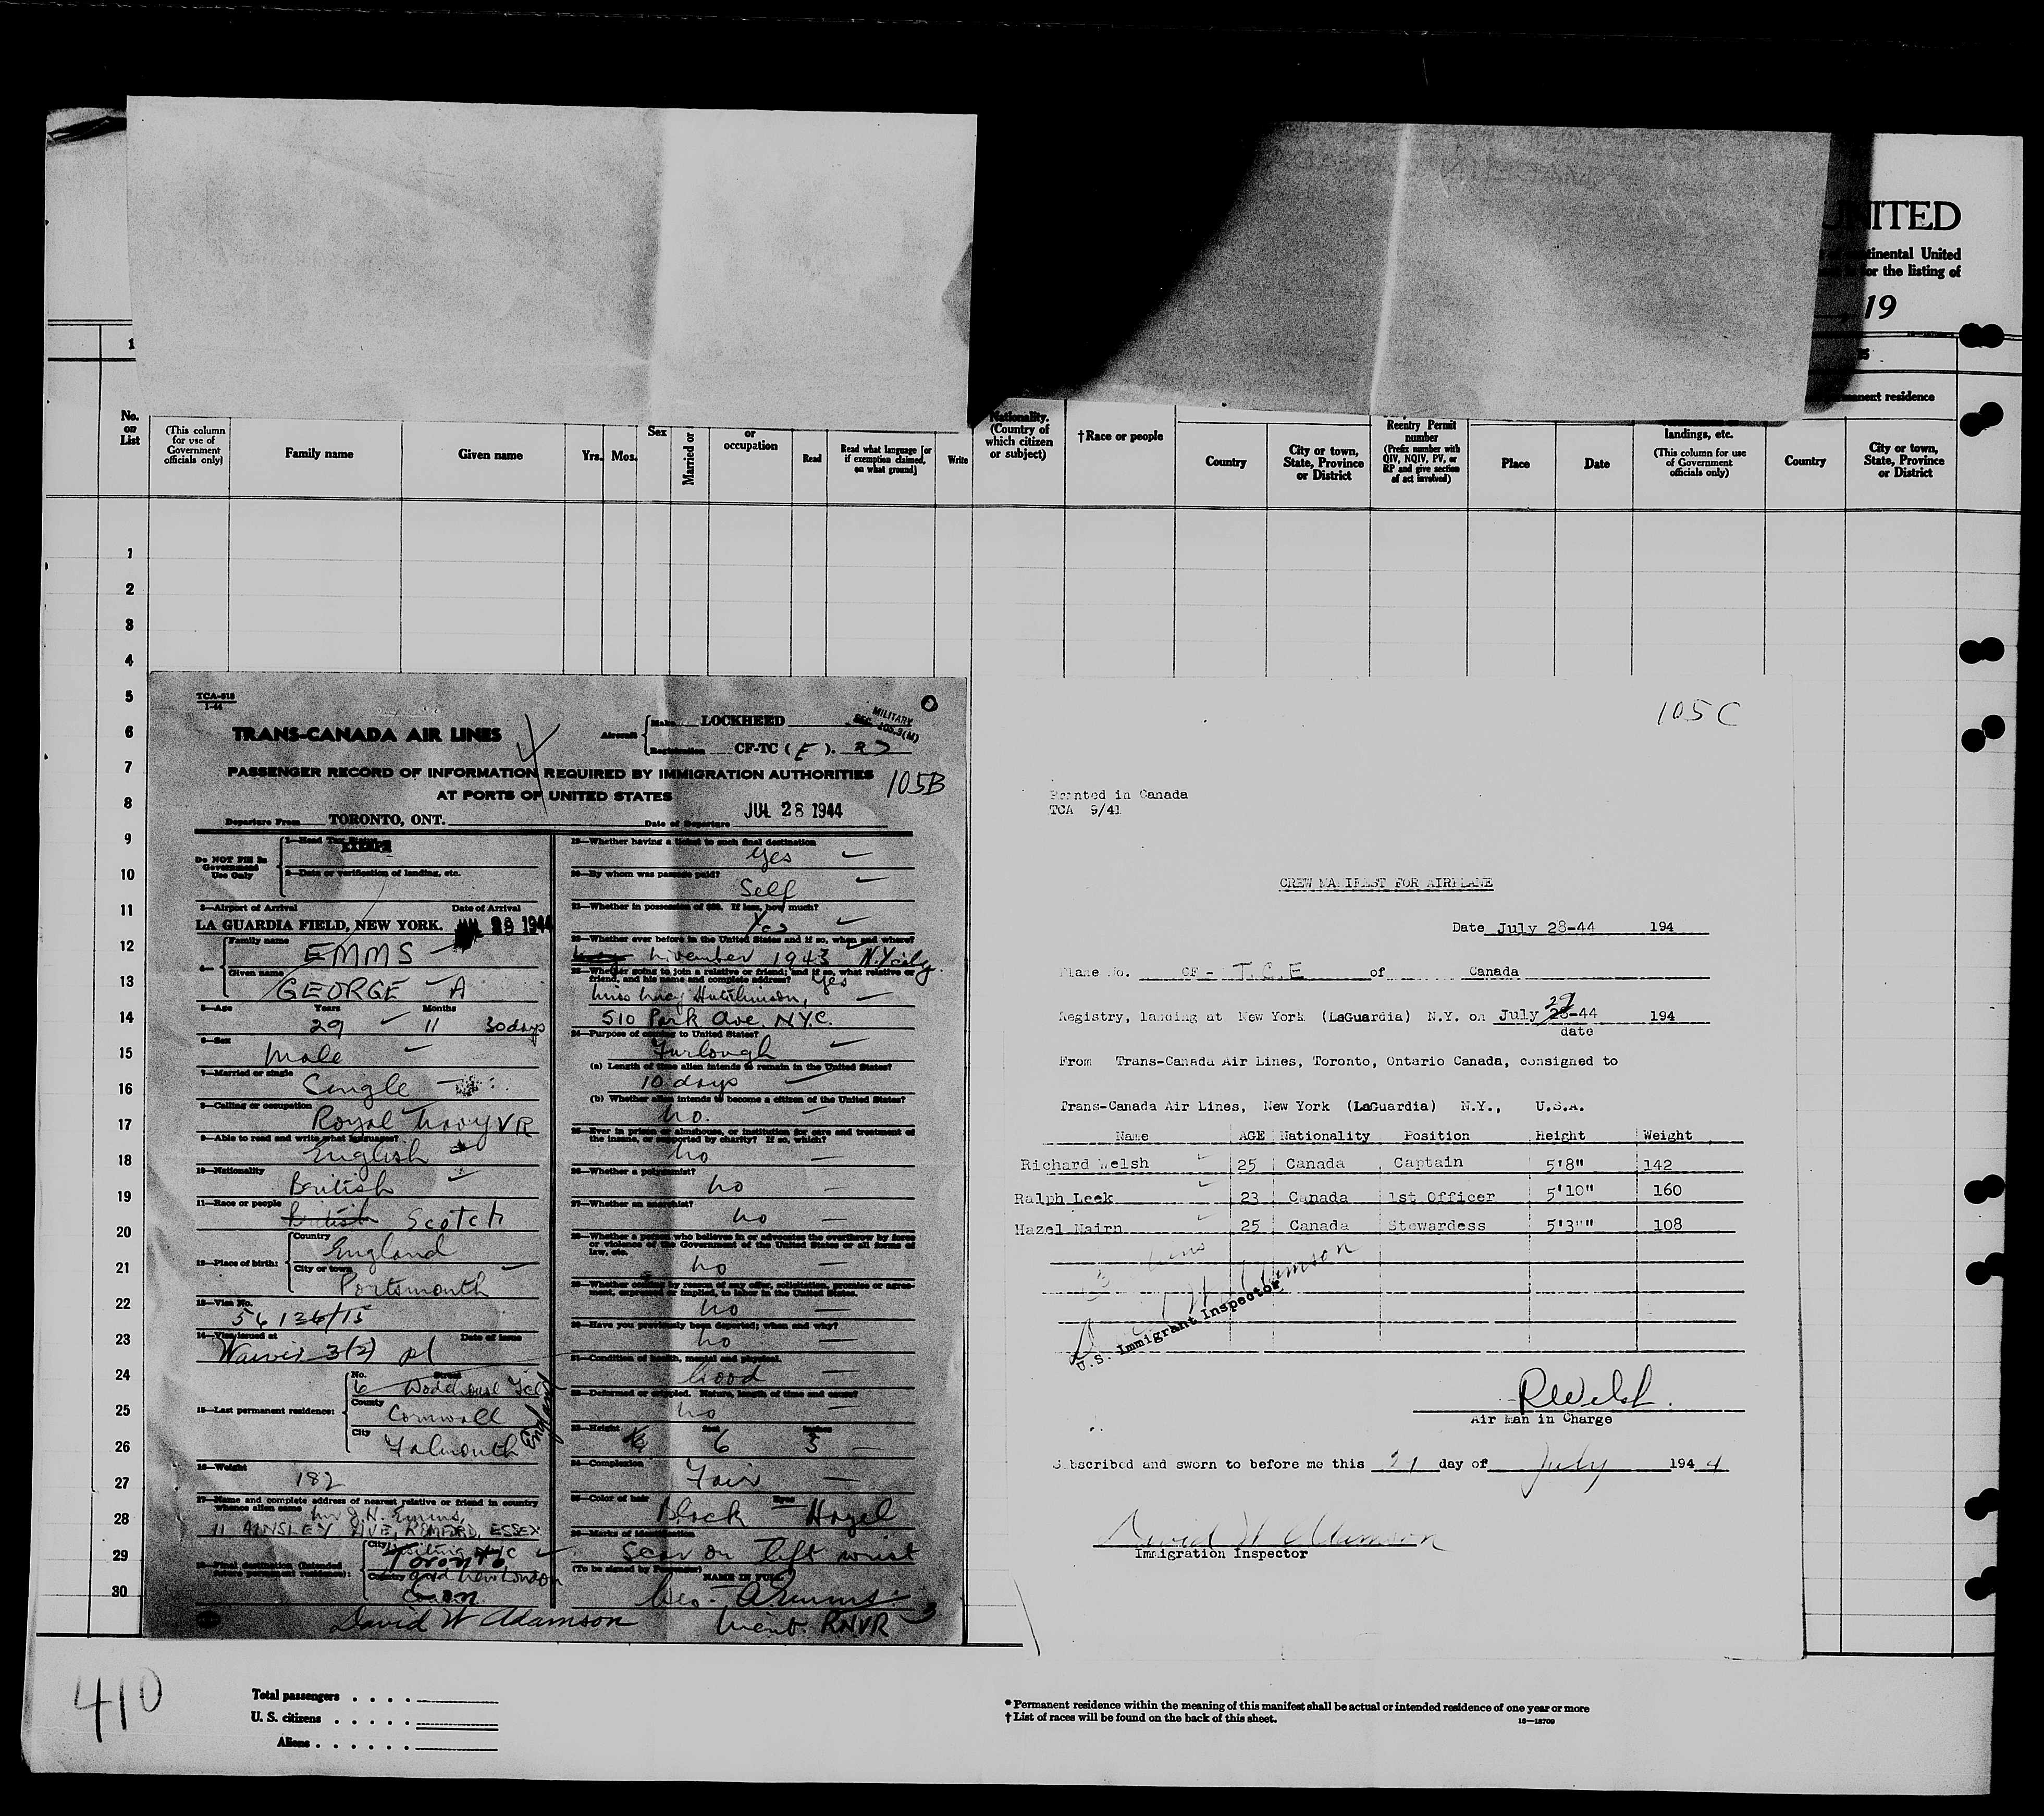 UNITED
tinental United
or the listing of
19
1
manent residence
No. on List
(This column for use of Government officials only)
Family name
Given name
Yrs.
Mos.
Sex
Married or
or occupation
Read
Read what language [or if exemption claimed, on what ground]
Write
Nationality. (Country of which citizen or subject)
†Race or people
Country
City or town, State, Province or District
Reentry Permit number (Prefix number with QIV, NQIV, PV, or RP and give section of act involved)
Place
Date
landings, etc. (This column for use of Government officials only)
Country
City or town, State, Province or District
1
2
3
4
5
6
7
8
9
10
11
12
13
14
15
16
17
18
19
20
21
22
23
24
25
26
27
28
29
30
TCA-818
1-44
TRANS-CANADA AIR LINES
Aircraft
Make LOCKHEED
Registration CF-TC (E).
MILITARY
PASSENGER RECORD OF INFORMATION REQUIRED BY IMMIGRATION AUTHORITIES
AT PORTS OF UNITED STATES
105B
Departure From TORONTO, ONT.
Date of Departure JUL 28 1944
Do NOT Fill In Government Use Only
1—Head Tax Status EXEMPT
2—Date or verification of landing, etc.
3—Airport of Arrival Date of Arrival
LA GUARDIA FIELD, NEW YORK. 29 1944
4— Family name EMMS
Given name GEORGE A
5—Age Years 29 Months 11 30 days
6—Sex Male
7—Married or single Single
8—Calling or occupation Royal Navy VR
9—Able to read and write what languages? English
10—Nationality British
11—Race or people British Scotch
12—Place of birth: Country England
City or town Portsmouth
13—Visa No.
14—Visa issued at Date of issue
Waiver 3(2)
15—Last permanent residence: No. Street
6
County Cornwall
City Falmouth England
16—Weight 182
17—Name and complete address of nearest relative or friend in country whence alien came
J.H. Emms,
11 AINSLEY AVE, ROMFORD, ESSEX
18—Final destination (Intended future permanent residence):
City Toronto
Country
David W Adamson
19—Whether having a ticket to such final destination
Yes
20—By whom was passage paid?
Self
21—Whether in possession of $50. If less, how much?
Yes
22—Whether ever before in the United States and if so, when and where?
November 1943 N.Y city
23—Whether going to join a relative or friend; and if so, what relative or friend, and his name and complete address? Yes
Miss Lucy Hutchinson,
510 Park Ave. N.Y.C.
24—Purpose of coming to United States?
Furlough
(a) Length of time alien intends to remain in the United States?
10 days
(b) Whether alien intends to become a citizen of the United States?
No.
25—Ever in prison or almshouse, or institution for care and treatment of the insane, or supported by charity? If so, which?
No
26—Whether a polygamist?
No
27—Whether an anarchist?
No
28—Whether a person who believes in or advocates the overthrow by force or violence of the Government of the United States or all forms of law, etc.
No
29—Whether coming by reason of any offer, solicitation, promise or agreement, expressed or implied, to labor in the United States.
No
30—Have you previously been deported; when and why?
No
31—Condition of health, mental and physical.
Good
32—Deformed or crippled. Nature, length of time and cause?
No
33—Height feet 6 inches 3
34—Complexion Fair
35—Color of hair Black Eyes Hazel
36—Marks of identification
Scar on left wrist
(To be signed by Passenger) NAME IN FULL
Geo. A Emms
Lieut. RNVR
105C
Printed in Canada
TCA 9/41
CREW MANIFEST FOR AIRPLANE
Date July 28-44 194
Plane No. CF - T.C.E of Canada
Registry, landing at New York (LaGuardia) N.Y. on July 28-44 194
29
date
From Trans-Canada Air Lines, Toronto, Ontario Canada, consigned to
Trans-Canada Air Lines, New York (LaGuardia) N.Y., U.S.A.
Name AGE Nationality Position Height Weight
Richard Welsh 25 Canada Captain 5'8" 142
Ralph Leek 23 Canada 1st Officer 5'10" 160
Hazel Nairn 25 Canada Stewardess 5'3"" 108
U.S. Immigrant Inspector
RWelsh.
Air Man in Charge
Subscribed and sworn to before me this day of July 194 4
David W Adamson
Immigration Inspector
410
Total passengers . . . .
U. S. citizens . . . . .
Aliens . . . . . .
* Permanent residence within the meaning of this manifest shall be actual or intended residence of one year or more
† List of races will be found on the back of this sheet.
16—18709